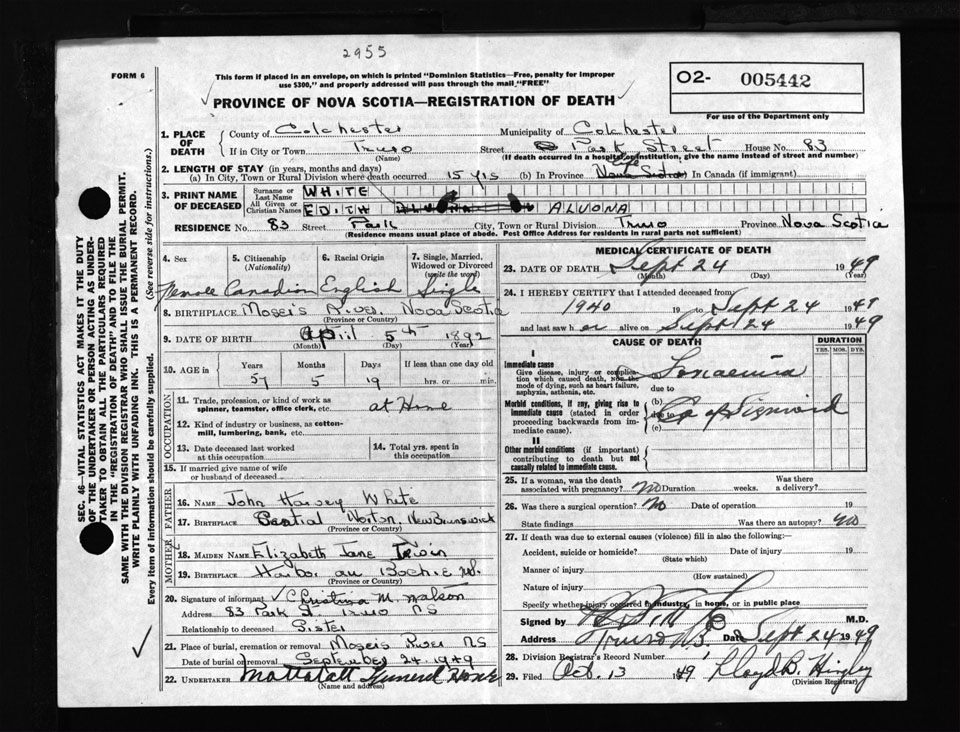 2955
FORM 6
This form if placed in an envelope, on which is printed "Dominion Statistics—Free, penalty for improper
use $300," and properly addressed will pass through the mail "FREE"
O2- 005442
For use of the Department only
PROVINCE OF NOVA SCOTIA—REGISTRATION OF DEATH
1. PLACE OF DEATH
County of Colchester Municipality of Colchester
If in City or Town Truro (Name) Street Park Street House No. 83
(If death occurred in a hospital or institution, give the name instead of street and number)
2. LENGTH OF STAY (in years, months and days)
(a) In City, Town or Rural Division where death occurred 15 yrs (b) In Province Life Nova Scotia In Canada (if immigrant)
3. PRINT NAME OF DECEASED
Surname or Last Name WHITE
All Given or Christian Names EDITH ALVONA
RESIDENCE No. 83 Street Park City, Town or Rural Division Truro Province Nova Scotia
(Residence means usual place of abode. Post Office Address for residents in rural parts not sufficient)
4. Sex 5. Citizenship (Nationality) 6. Racial Origin 7. Single, Married, Widowed or Divorced (write the word)
Female Canadian English Single
8. BIRTHPLACE Moseis River Nova Scotia
(Province or Country)
9. DATE OF BIRTH April 5th 1892
(Month) (Day) (Year)
10. AGE in Years Months Days If less than one day old
57 5 19 hrs. or min.
OCCUPATION
11. Trade, profession, or kind of work as
spinner, teamster, office clerk, etc. at Home
12. Kind of industry or business, as cotton-
mill, lumbering, bank, etc.
13. Date deceased last worked at this occupation
14. Total yrs. spent in this occupation
15. If married give name of wife
or husband of deceased
FATHER
16. NAME John Harvey White
17. BIRTHPLACE Norton, New Brunswick
(Province or Country)
MOTHER
18. MAIDEN NAME Elizabeth Jane Irwin
19. BIRTHPLACE Harbor au Bochie NS.
(Province or Country)
20. Signature of informant Christina M. Watson
Address 83 Park St Truro NS
Relationship to deceased Sister
21. Place of burial, cremation or removal Moseis River NS
Date of burial or removal September 24. 1949
22. UNDERTAKER Mattatall Funeral Home
(Name and address)
MEDICAL CERTIFICATE OF DEATH
23. DATE OF DEATH Sept 24 1949
(Month) (Day) (Year)
24. I HEREBY CERTIFY that I attended deceased from
1940 19 to Sept 24 1949
and last saw her alive on Sept 24 1949
CAUSE OF DEATH
DURATION
YRS. MOS. DYS.
I
Immediate cause
Give disease, injury or complica-
tion which caused death, Not the
mode of dying, such as heart failure,
asphyxia, asthenia, etc.
due to
Morbid conditions, if any, giving rise to
immediate cause (stated in order
proceeding backwards from im-
mediate cause).
(b)
due to
(c)
Ca of Sigmoid
II
Other morbid conditions (if important)
contributing to death but not
causally related to immediate cause.
25. If a woman, was the death
associated with pregnancy? No Duration weeks. Was there a delivery?
26. Was there a surgical operation? No Date of operation 19
State findings Was there an autopsy? No
27. If death was due to external causes (violence) fill in also the following:—
Accident, suicide or homicide? Date of injury 19
(State which)
Manner of injury
(How sustained)
Nature of injury
Specify whether injury occurred in industry, in home, or in public place
Signed by M.D.
Address Truro NS Date Sept 24 1949
28. Division Registrar's Record Number
29. Filed Oct. 13 1949 Lloyd B. Hingley
(Division Registrar)
SEC. 46—VITAL STATISTICS ACT MAKES IT THE DUTY
OF THE UNDERTAKER OR PERSON ACTING AS UNDER-
TAKER TO OBTAIN ALL THE PARTICULARS REQUIRED
IN THE "REGISTRATION OF DEATH" AND TO FILE THE
SAME WITH THE DIVISION REGISTRAR WHO SHALL ISSUE THE BURIAL PERMIT.
WRITE PLAINLY WITH UNFADING INK. THIS IS A PERMANENT RECORD.
Every item of information should be carefully supplied. (See reverse side for instructions.)